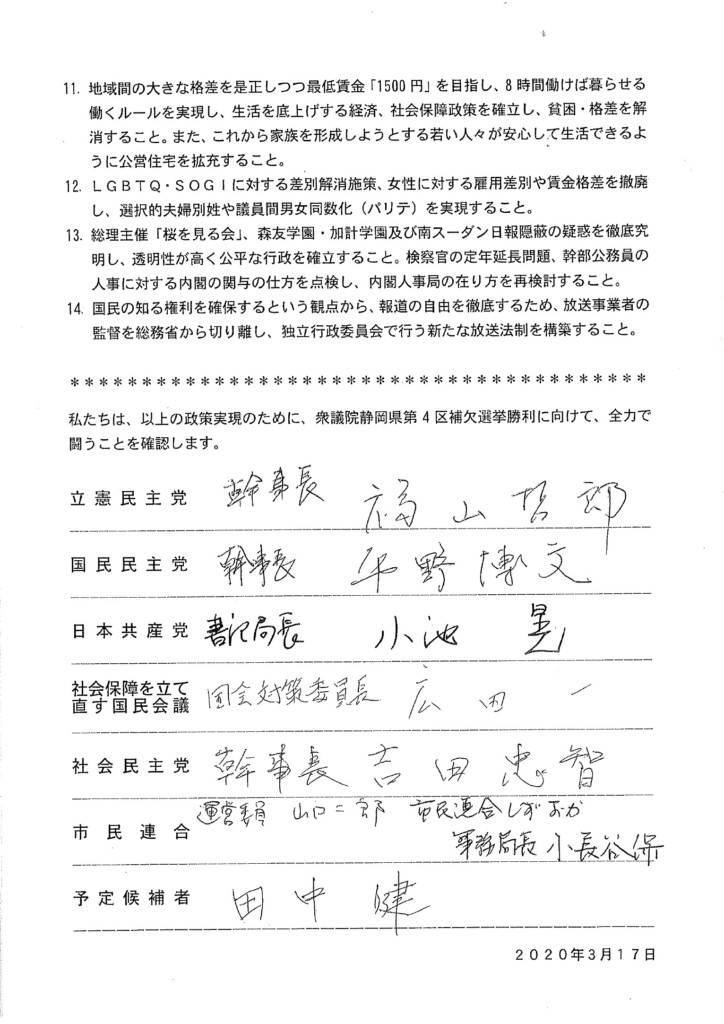 11. 地域間の大きな格差を是正しつつ最低賃金「1500円」を目指し、8時間働けば暮らせる
働くルールを実現し、生活を底上げする経済、社会保障政策を確立し、貧困・格差を解
消すること。また、これから家族を形成しようとする若い人々が安心して生活できるよ
うに公営住宅を拡充すること。
12. ＬＧＢＴＱ・ＳＯＧＩに対する差別解消施策、女性に対する雇用差別や賃金格差を撤廃
し、選択的夫婦別姓や議員間男女同数化（パリテ）を実現すること。
13. 総理主催「桜を見る会」、森友学園・加計学園及び南スーダン日報隠蔽の疑惑を徹底究
明し、透明性が高く公平な行政を確立すること。検察官の定年延長問題、幹部公務員の
人事に対する内閣の関与の仕方を点検し、内閣人事局の在り方を再検討すること。
14. 国民の知る権利を確保するという観点から、報道の自由を徹底するため、放送事業者の
監督を総務省から切り離し、独立行政委員会で行う新たな放送法制を構築すること。
＊＊＊＊＊＊＊＊＊＊＊＊＊＊＊＊＊＊＊＊＊＊＊＊＊＊＊＊＊＊＊＊＊＊＊＊＊＊＊＊
私たちは、以上の政策実現のために、衆議院静岡県第４区補欠選挙勝利に向けて、全力で
闘うことを確認します。
立憲民主党 幹事長 福山哲郎
国民民主党 幹事長 平野博文
日本共産党 書記局長 小池 晃
社会保障を立て
直す国民会議 国会対策委員長 広田 一
社会民主党 幹事長 吉田忠智
市民連合 運営委員 山口二郎 市民連合しずおか
事務局長 小長谷保
予定候補者 田中健
２０２０年３月１７日